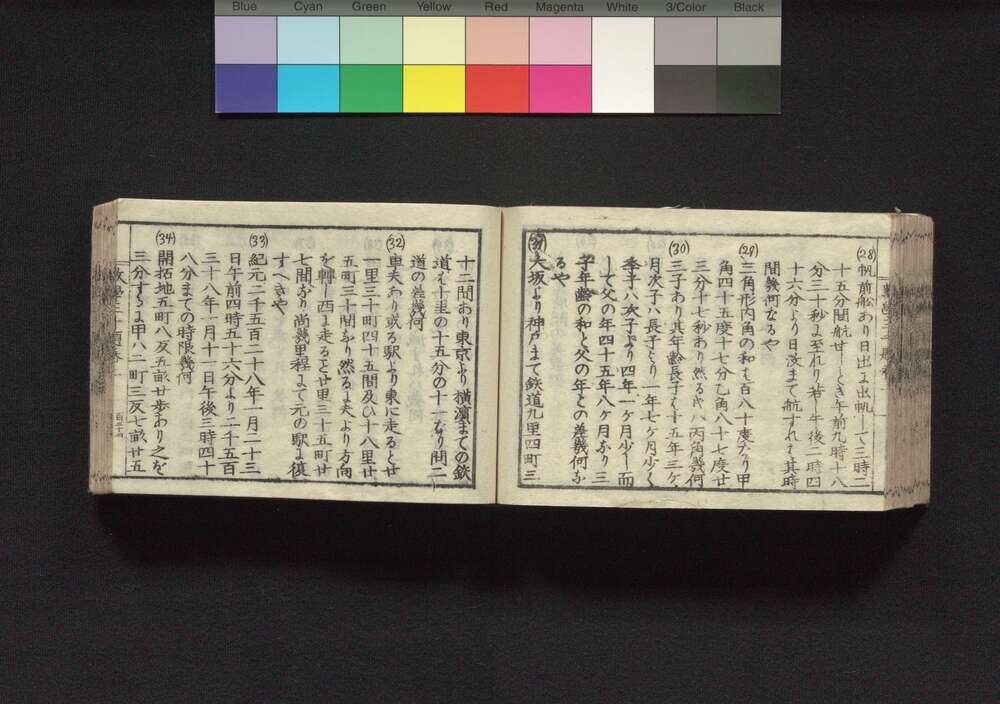 Blue Cyan Green Yellow Red Magenta White 3/Color Black
(28) 帆前舩あり日出ょ出帆して三時二
十五分間航せしとき午前九時十八
分三十秒ょ至れり若し午後二時四
十六分より日没まて航すれは其時
間幾何なるや
(29) 三角形内角の和も百八十度なり甲
角四十五度十七分乙角八十七度廿
三分十七秒あり然るヰハ丙角幾何
(30) 三子あり其年齢長子も十五年三ケ
月次子ハ長子より一年七ケ月少く
季子ハ次子より四年一ケ月少し而
して父の年四十五年八ケ月なり三
子年齢の和と父の年との差幾何な
るや
(31) 大坂より神戸まて鉄道九里四町三
十二間あり東京より横濱まての鉄
道も十里の十五分の十一なり問二
道の差幾何
(32) 車夫あり或る駅より東に走ること廿
一里三十町四十五間及ひ十八里廿
五町三十間なり然るょ夫より方向
を轉し西ょ走ること廿里三十五町廿
七間なり尚幾里程まて元の駅ょ復
すへきや
(33) 紀元二千五百二十八年一月二十三
日午前四時五十六分より二千五百
三十八年一月十一日午後三時四十
八分まての時限幾何
(34) 開拓地五町八反五畝廿歩あり之を
三分するょ甲ハ二町三反七畝廿五